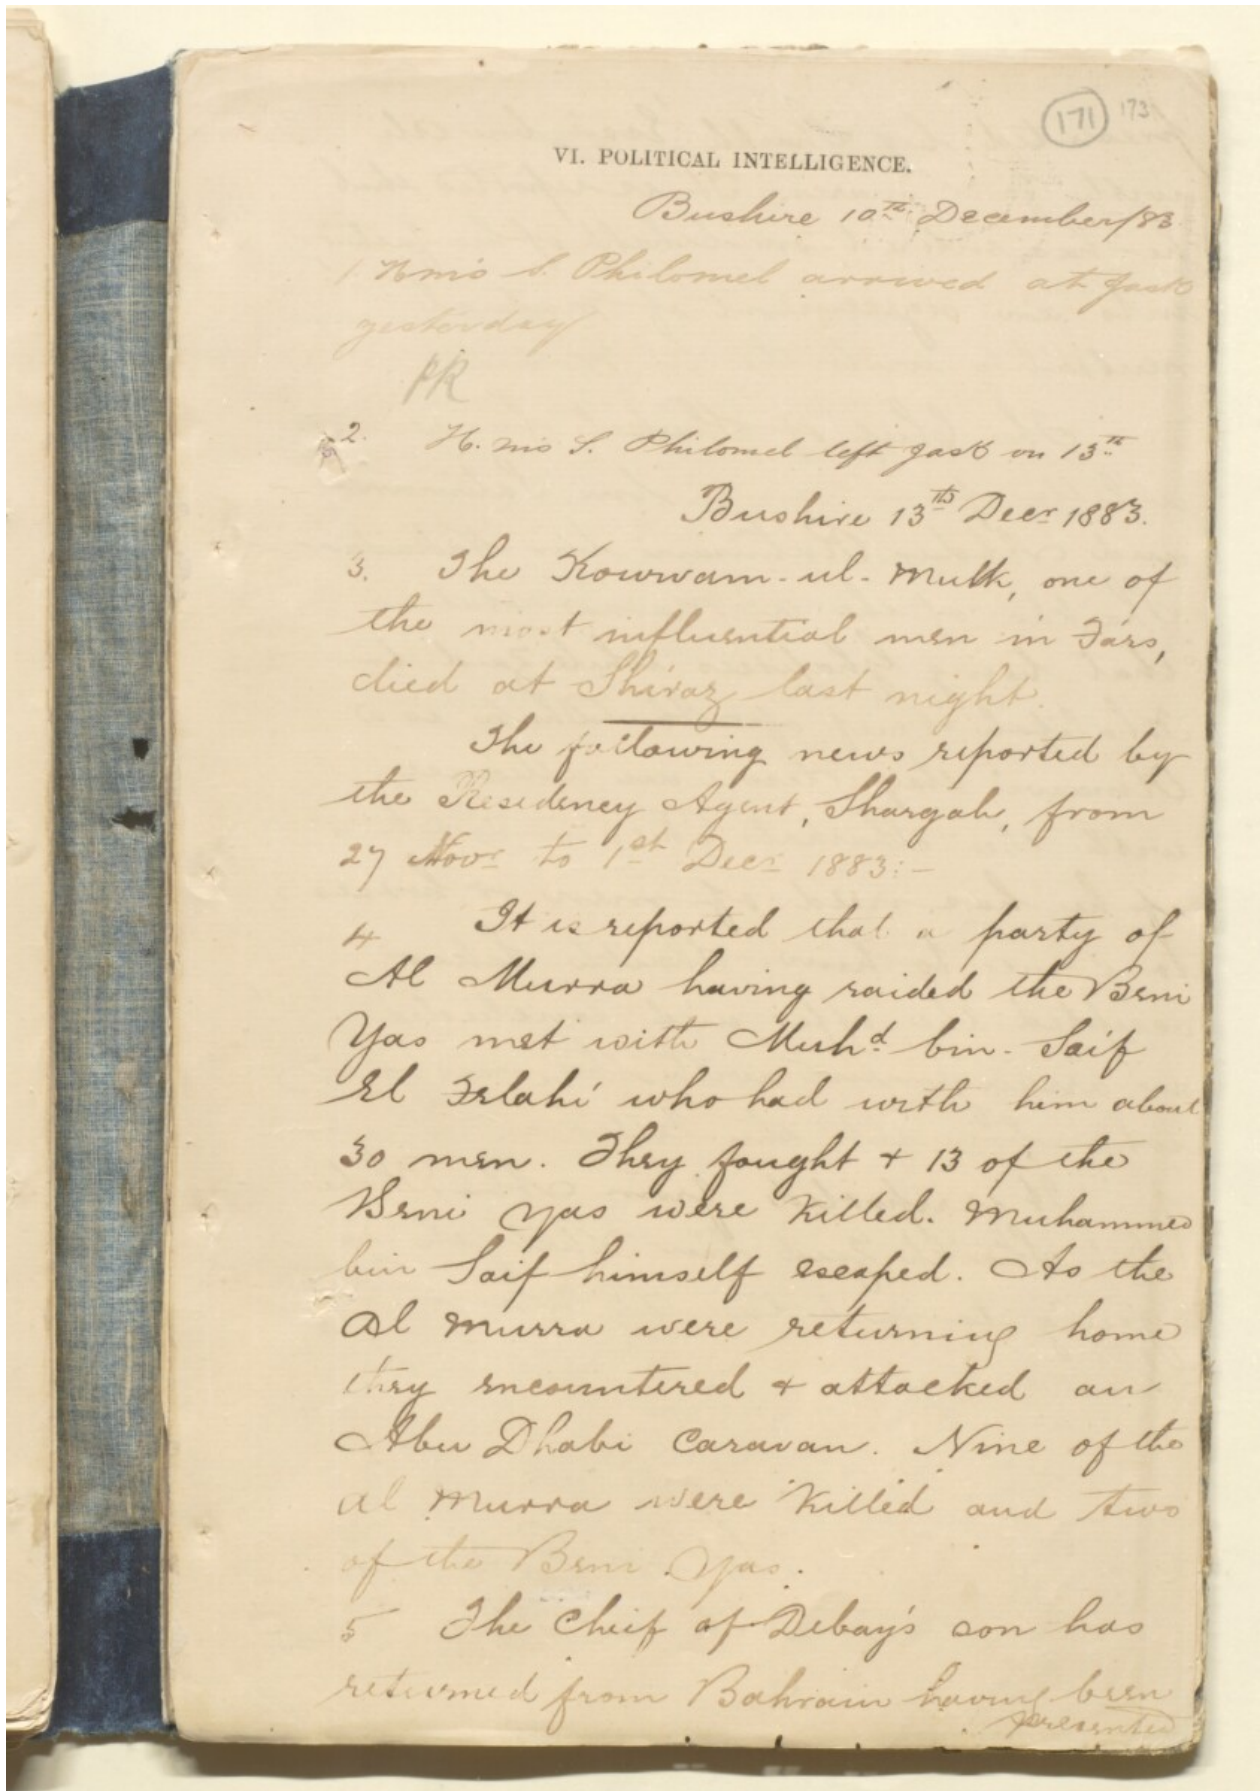 171 173
VI. POLITICAL INTELLIGENCE.
Bushire 10th December/83
1 H.M.S. Philomel arrived at Jask
yesterday
2. H.M.S. Philomel left Jask on 13th
Bushire 13th Decr 1883.
3. The Kowwam-ul-Mulk, one of
the most influential men in Fárs,
died at Shiraz last night.
The following news reported by
the Residency Agent, Shargah, from
27 Novr to 1st Decr 1883:-
4 It is reported that a party of
Al Murra having raided the Beni
Yas met with Muhd. bin-Saif
El Felahí who had with him about
30 men. They fought + 13 of the
Beni Yas were killed. Muhammed
bin Saif himself escaped. As the
Al Murra were returning home
they encountered + attacked an
Abu Dhabi Caravan. Nine of the
Al Murra were killed and two
of the Beni Yas.
5 The Cheif of Debay's son has
returned from Bahrain having been
presented